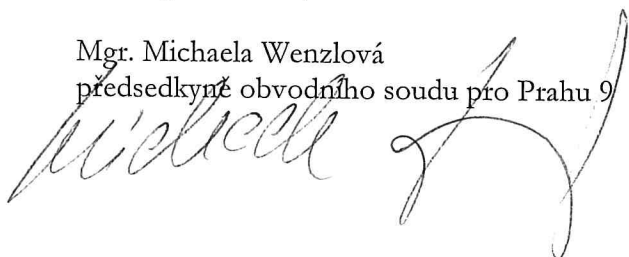 Mgr. Michaela Wenzlová
předsedkyně obvodního soudu pro Prahu 9